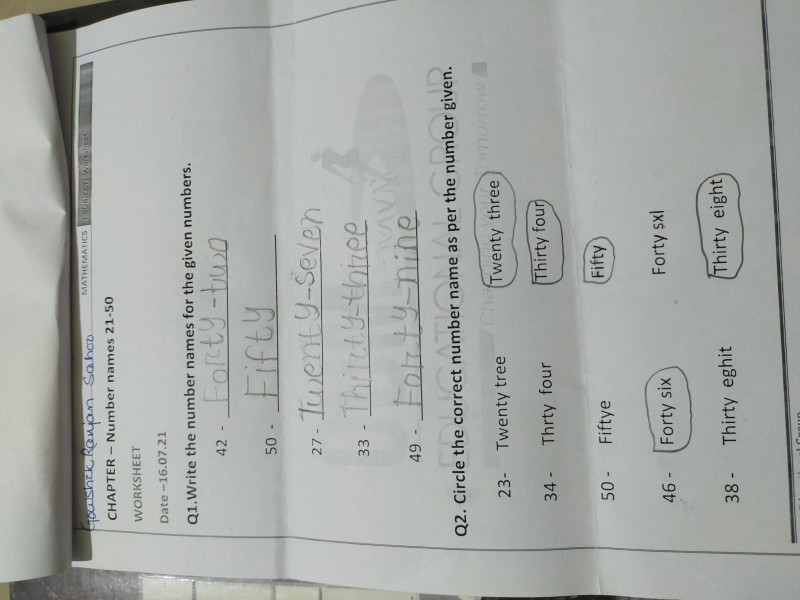 Koushik Ranjan Sahoo MATHEMATICS SUBJECT: Worksheet
CHAPTER – Number names 21-50
WORKSHEET
Date –16.07.21
Q1.Write the number names for the given numbers.
42 - Forty-two
50 - Fifty
27 - Twenty-Seven
33 - Thirty-three
49 - Forty-nine
EDUCATIONAL GROUP
Q2. Circle the correct number name as per the number given.
23- Twenty tree Twenty three
34 - Thrty four Thirty four
50 - Fiftye Fifty
46 - Forty six Forty sxl
38 - Thirty eghit Thirty eight